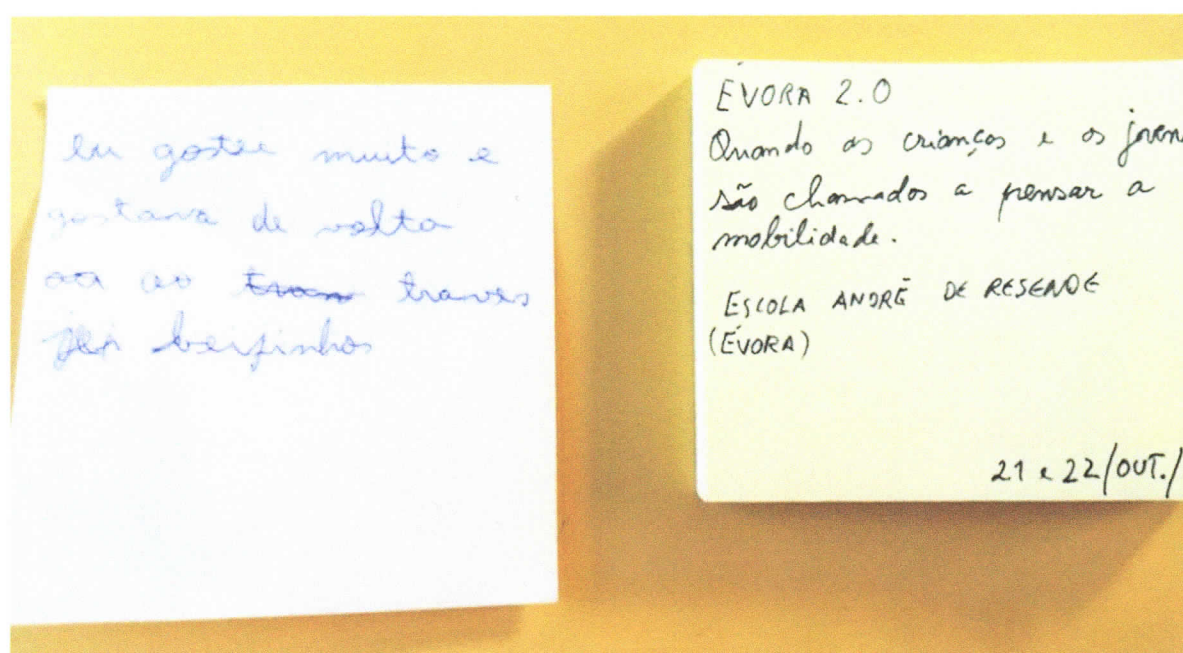 eu gostei muito e
gostava de volta
ao travers
beifinhos
ÉVORA 2.0
Quando as crianças e os joven
são chamados a pensar a
mobilidade.
ESCOLA ANDRÉ DE RESENDE
(ÉVORA)
21 e 22/OUT./